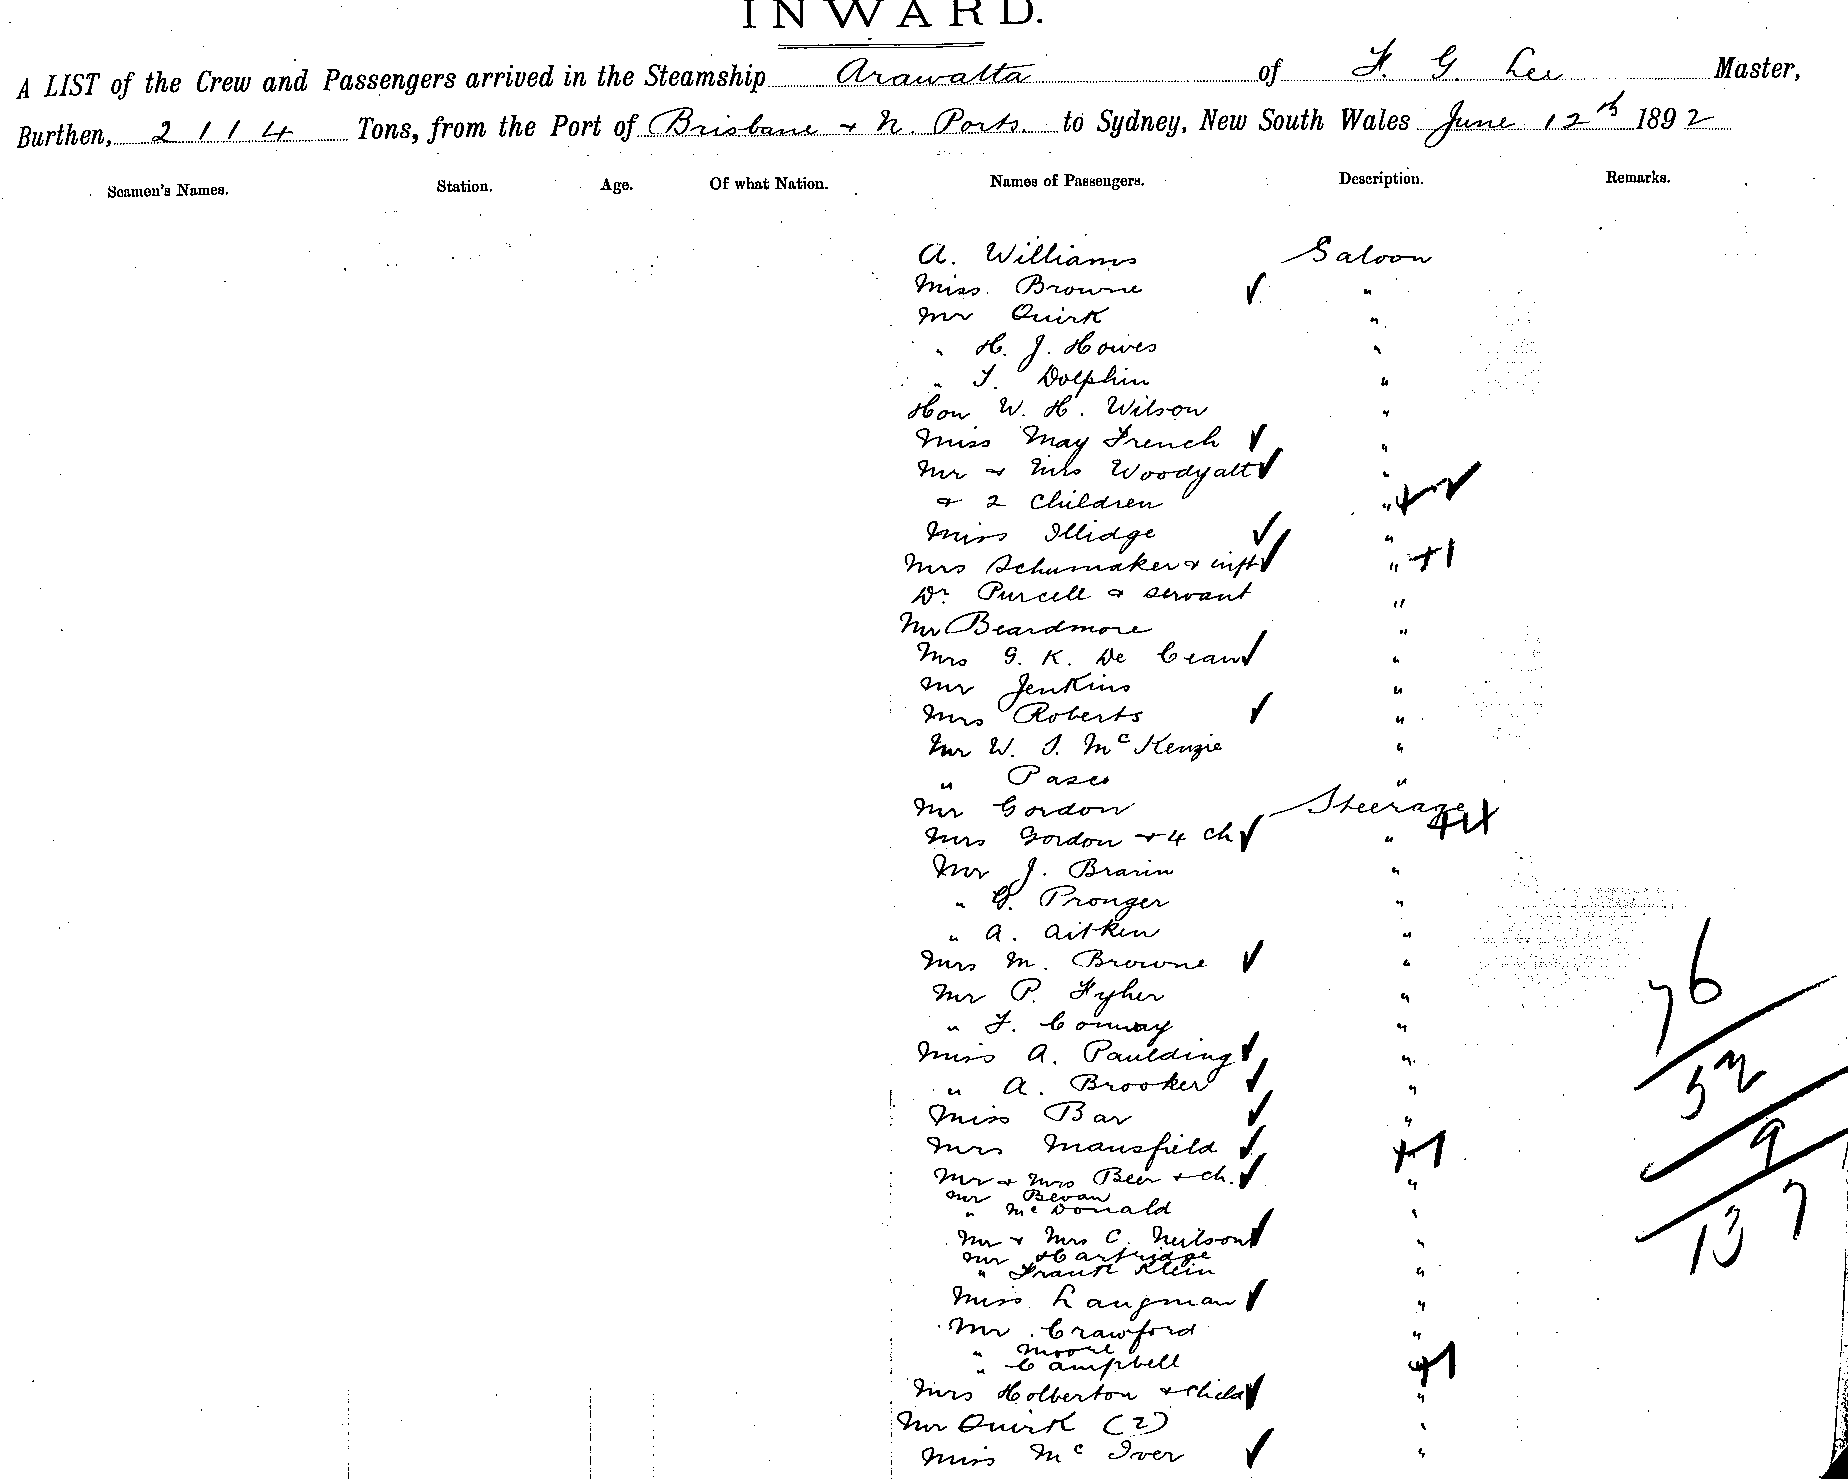 INWARD.
A LIST of the Crew and Passengers arrived in the Steamship Arawatta of F. G. Lee Master,
Burthen, 2114 Tons, from the Port of Brisbane + N. Ports. to Sydney, New South Wales June 12th 1892
Seamen's Names. Station. Age. Of what Nation. Names of Passengers. Description. Remarks.
A. Williams Saloon
Miss Browne ✓ "
Mr Quirk "
" H. J. Howes "
" T. Dolphin "
Hon W. H. Wilson "
Miss May French ✓ "
Mr + Mrs Woodyatt ✓ "
+ 2 Children " +2 ✓
Miss Illidge ✓ "
Mrs Schumaker + inft ✓ " +1
Dr Purcell + servant "
Mr Beardmore "
Mrs G. K. De ✓ "
Mr Jenkins "
Mrs Roberts ✓ "
Mr W. S. McKenzie "
" Pasco "
Mr Gordon Steerage
Mrs Gordon + 4 ch ✓ " +4
Mr J. "
" G. Pronger "
" A. Aitken "
Mrs M. Browne ✓ "
Mr P. Fyher "
" F. Conway "
Miss A. Paulding ✓ "
" A. Brooker ✓ "
Miss Bar ✓ "
Mrs Mansfield ✓ +1
Mr + Mrs Beer + ch. ✓ "
Mr Bevan
" McDonald "
Mr + Mrs C. Neilson ✓ "
Mr Hartridge
" Frank Klein "
Miss Langman ✓ "
Mr Crawford "
" Moore
" Campbell " +1
Mrs Holberton + child ✓ "
Mr Quirk (2) "
Miss McIver ✓ "
76
52
9
137